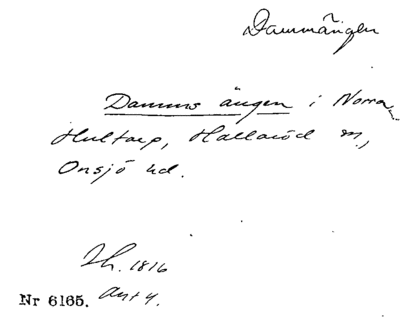 Dammängen
Damms ängen i Norra
Hultarp, Hallaröd sn,
Onsjö hd.
Lh. 1816
Akt 4.
Nr 6165.